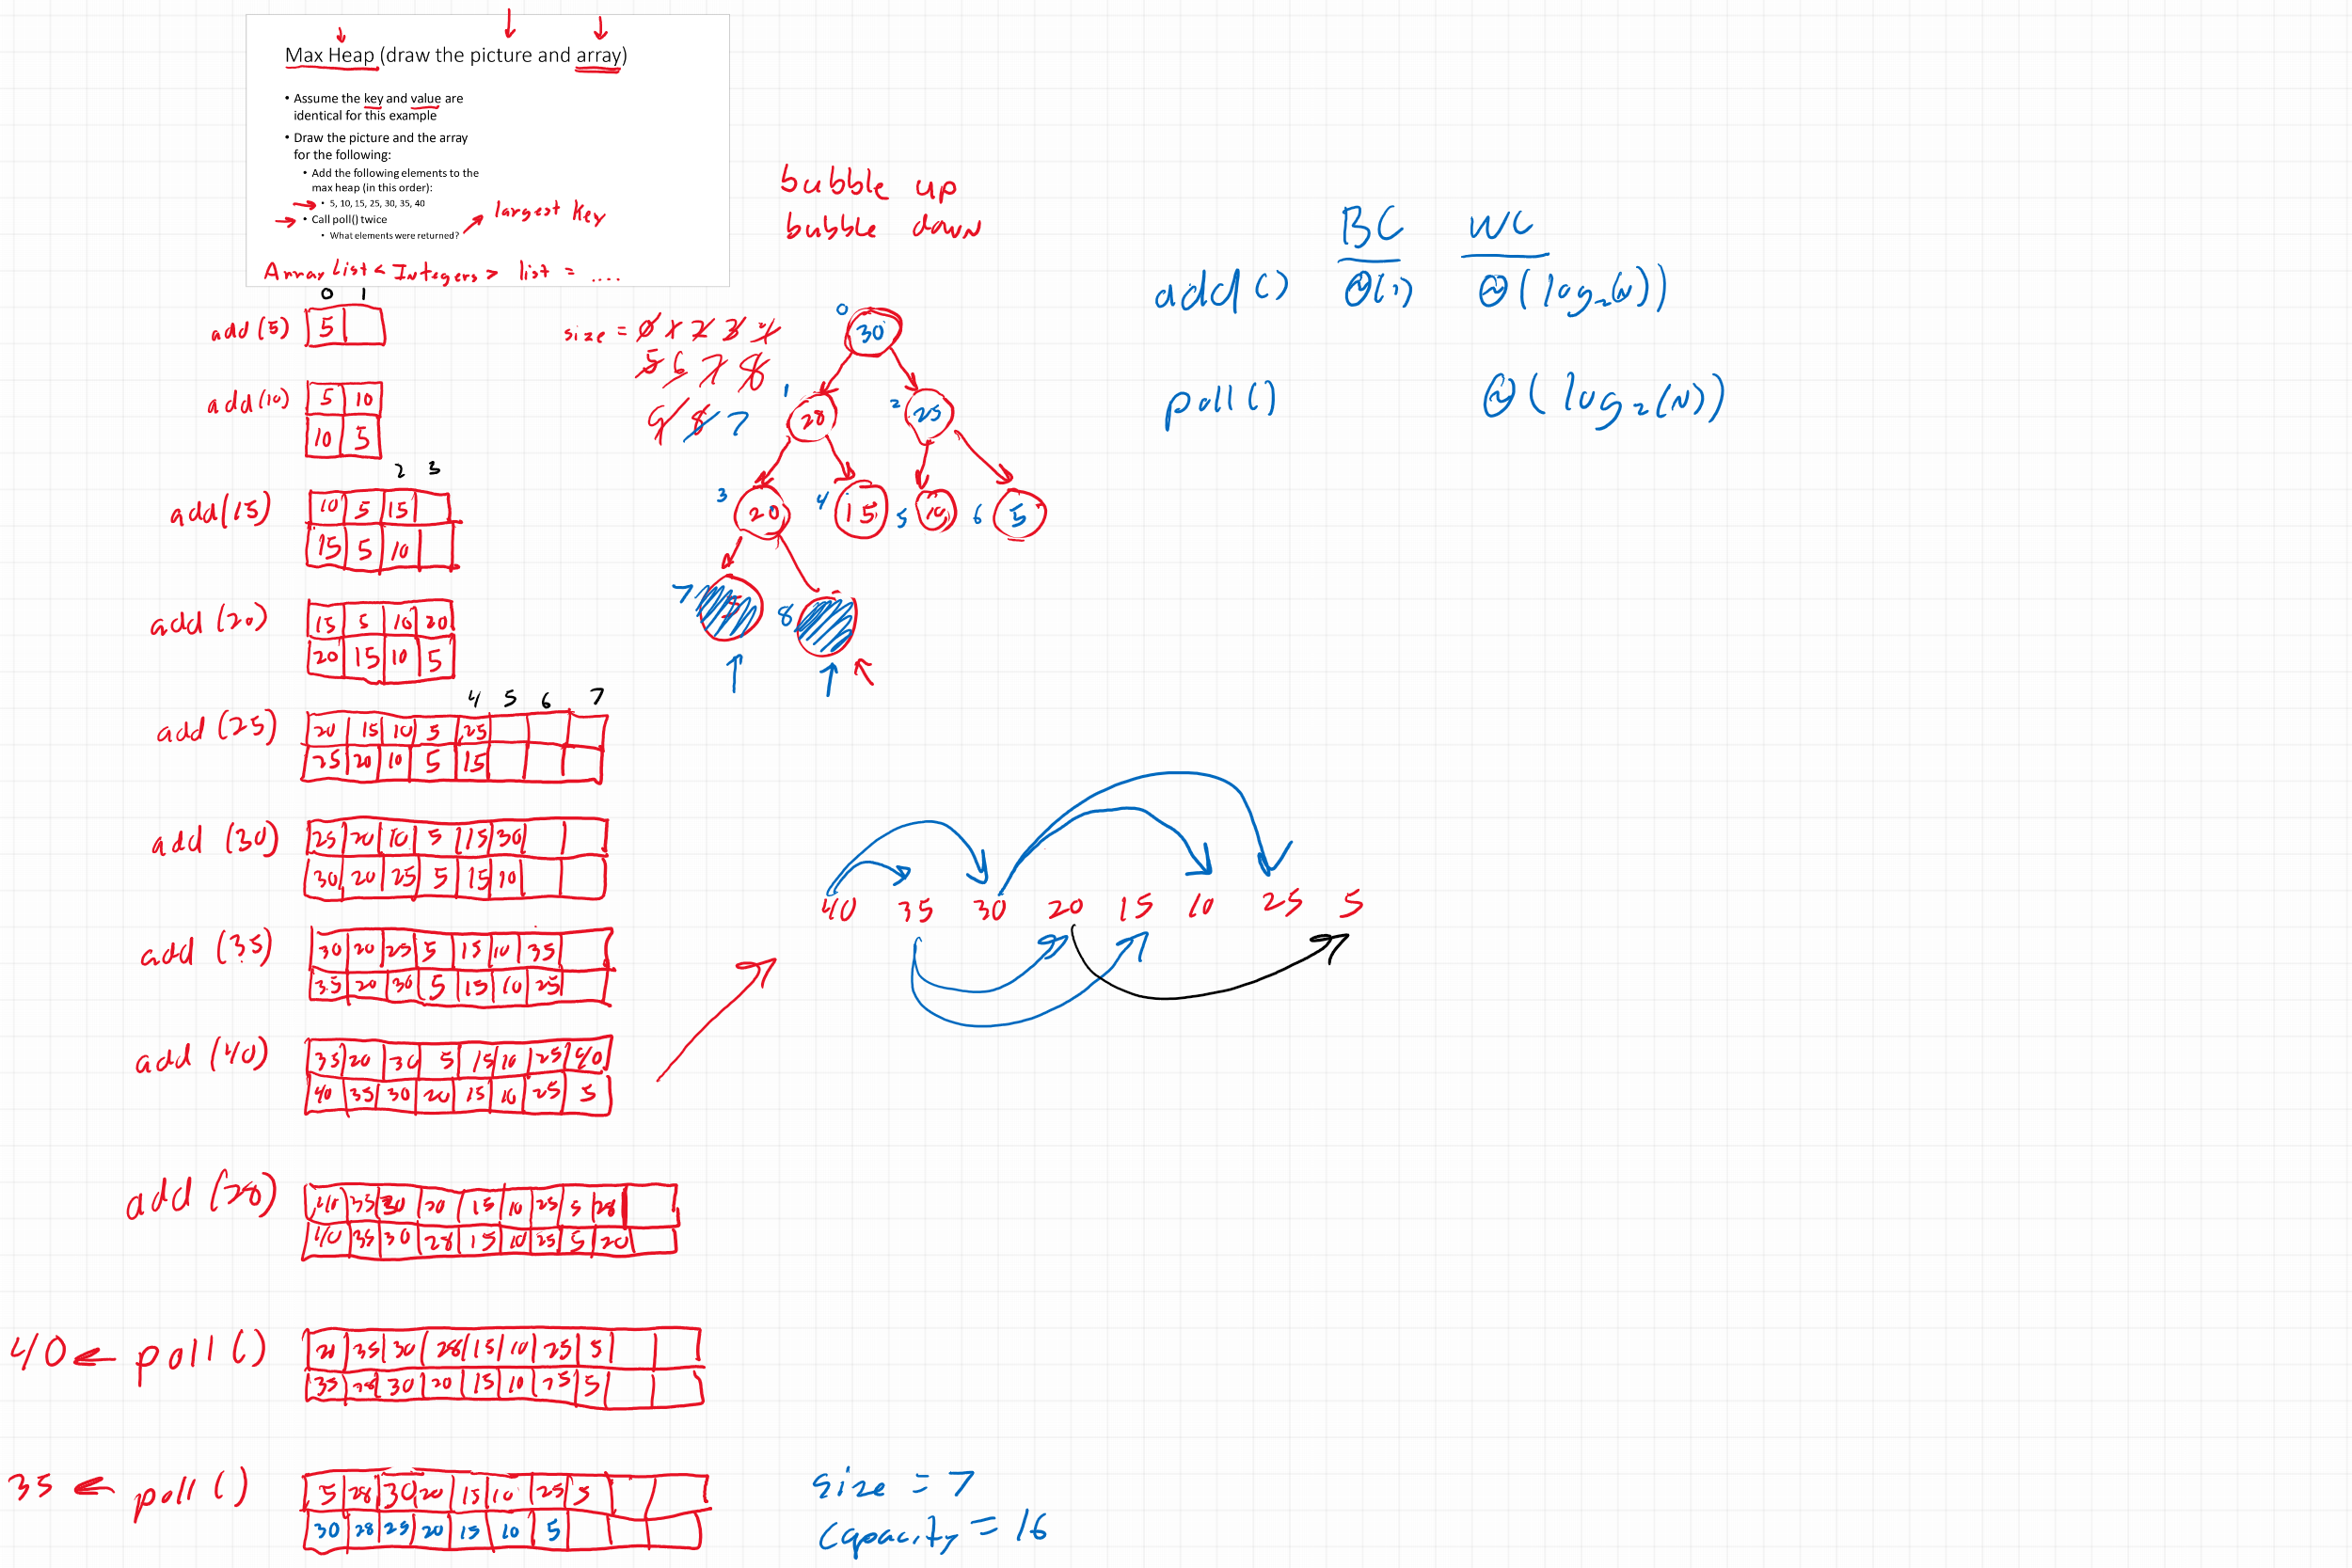 Max Heap (draw the picture and array)
• Assume the key and value are
identical for this example
• Draw the picture and the array
for the following:
• Add the following elements to the
max heap (in this order):
• 5, 10, 15, 25, 30, 35, 40
• Call poll() twice
• What elements were returned?
largest key
Array List < Integers > list = ....
bubble up
bubble down
BC WC
add() Θ(1) Θ(log₂(N))
poll() Θ(log₂(N))
0 1
add(5) 5
add(10) 5 10
10 5
2 3
add(15) 10 5 15
15 5 10
add(20) 15 5 10 20
20 15 10 5
4 5 6 7
add(25) 20 15 10 5 25
25 20 10 5 15
add(30) 25 20 10 5 15 30
30 20 25 5 15 10
add(35) 30 20 25 5 15 10 35
35 20 30 5 15 10 25
add(40) 35 20 30 5 15 10 25 40
40 35 30 20 15 10 25 5
add(28) 40 35 30 20 15 10 25 5 28
40 35 30 28 15 10 25 5 20
40 ← poll() 20 35 30 28 15 10 25 5
35 28 30 20 15 10 25 5
35 ← poll() 5 28 30 20 15 10 25 5
30 28 25 20 15 10 5
size = 0 1 2 3 4
5 6 7 8
9 8 7
0 30
1 28 2 25
3 20 4 15 5 10 6 5
7 8
40 35 30 20 15 10 25 5
size = 7
capacity = 16